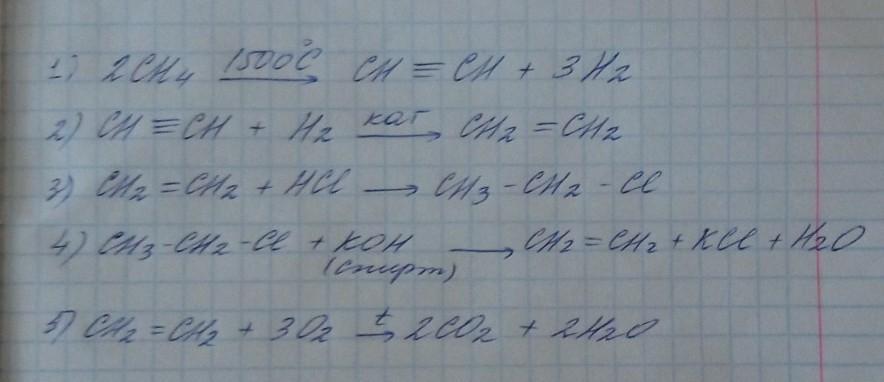 1) 2CH4 1500°C → CH ≡ CH + 3H2
2) CH ≡ CH + H2 кат → CH2 = CH2
3) CH2 = CH2 + HCl → CH3 - CH2 - Cl
4) CH3 - CH2 - Cl + KOH (спирт) → CH2 = CH2 + KCl + H2O
5) CH2 = CH2 + 3O2 t → 2CO2 + 2H2O